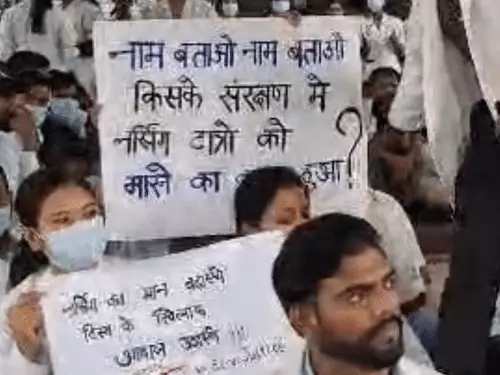 नाम बताओ नाम बताओ
किसके संरक्षण मे
नर्सिंग छात्रो को
मारने का हुआ?
नर्सिंग का मान बढ़ाएंगे
हिंसा के खिलाफ
आवाज उठाएंगे !!!